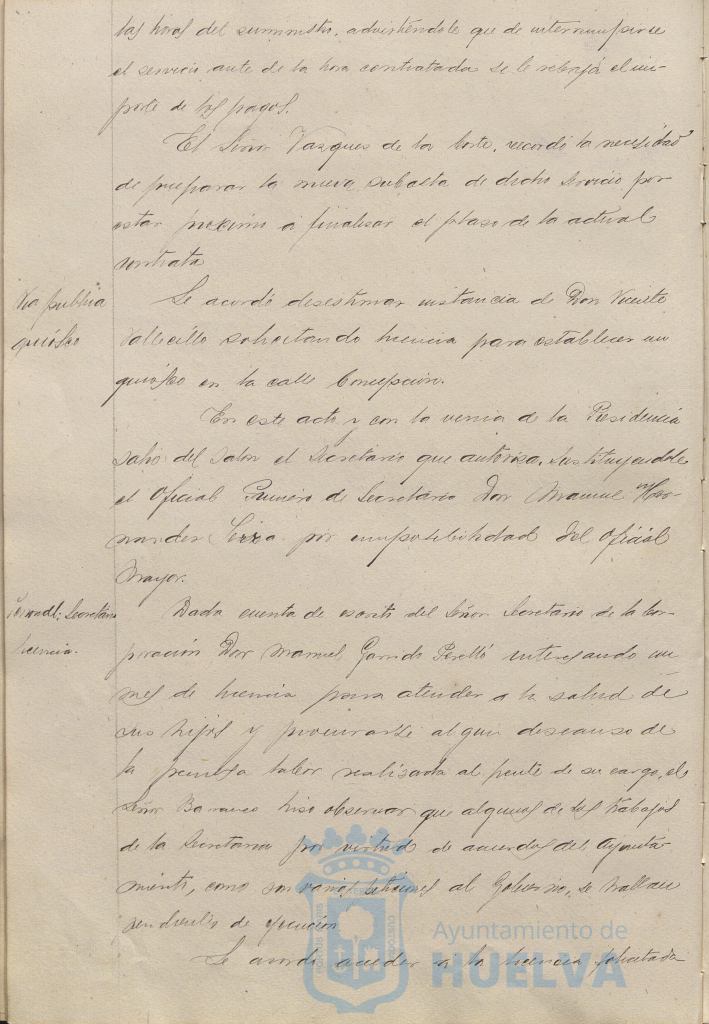 las horas del suministro, advirtiéndole que de interrumpirse
el servicio ante de la hora contratada se le rebaja el im-
porte de los pagos.
El Señor Vazquez de la Corte, recordó la necesidad
de preparar la nueva subasta de dicho servicio por
estar próximo a finalizar el plazo de la actual
contrata
Via publica
quiosko
Se acordó desestimar instancia de Don Vicente
Vallecillo solicitando licencia para establecer un
quiosko en la calle Concepcion.
En este acto y con la venia de la Presidencia
salió del salon el Secretario que autoriza, sustituyendole
el Oficial Primero de Secretaria Don Manuel Her-
nandez por imposibilidad del Oficial
Mayor.
Secretario
licencia.
Dada cuenta de escrito del Señor Secretario de la Cor-
poración Don Manuel Garrido Perelló interesando un
mes de licencia para atender a la salud de
sus hijos y procurarse algun descanso de
la penosa labor realizada al frente de su cargo, el
Señor Barranco hizo observar que algunos de los trabajos
de la Secretaria por virtud de acuerdos del Ayunta-
miento, como son varias peticiones al Gobierno, se hallan
pendientes de ejecución
Se acordó acceder a la licencia solicitada
Ayuntamiento de
HUELVA